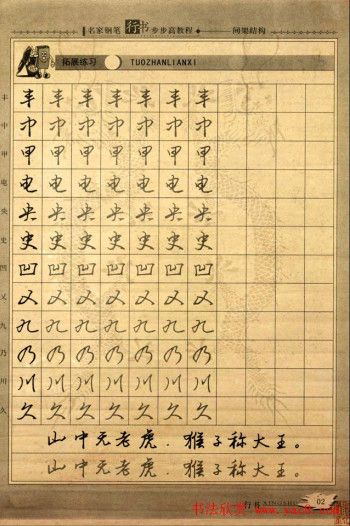 名家钢笔 行书 步步高教程 间架结构
拓展练习 TUOZHANLIANXI
丰 丰 丰 丰 丰 丰 丰 丰
中 中 中 中 中 中 中 中
甲 甲 甲 甲 甲 甲 甲 甲
电 电 电 电 电 电 电 电
央 央 央 央 央 央 央 央
史 史 史 史 史 史 史 史
凹 凹 凹 凹 凹 凹 凹 凹
乂 乂 乂 乂 乂 乂 乂 乂
九 九 九 九 九 九 九 九
乃 乃 乃 乃 乃 乃 乃 乃
川 川 川 川 川 川 川 川
久 久 久 久 久 久 久 久
山中无老虎.猴子称大王。
山中无老虎.猴子称大王。
行书 XINGSHU 02
书法欣赏 www.yac8.com